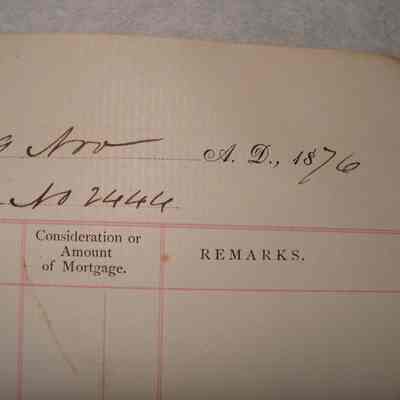 Nov A. D., 1876
No 2444
Consideration or
Amount
of Mortgage.
REMARKS.